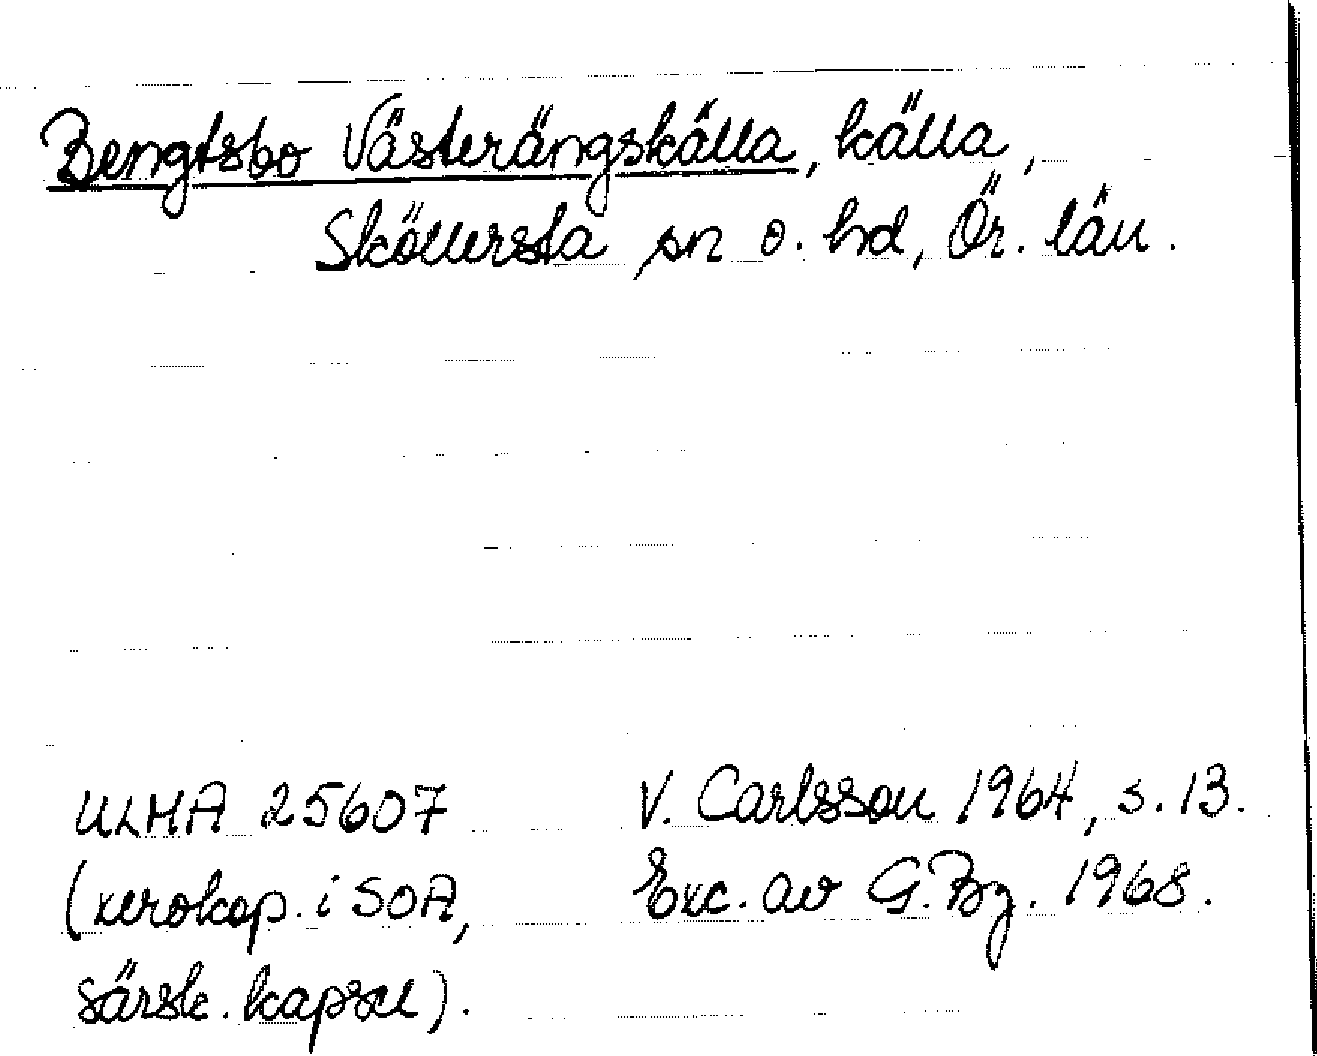 Bengtsbo Västerängskälla, källa,
Sköllersta sn o. hd, Ör. län.
ULMA 25607
(xerokop. i SOA,
särsk. kapsel).
V. Carlsson 1964, s. 13.
Exc. av G. Bg. 1968.